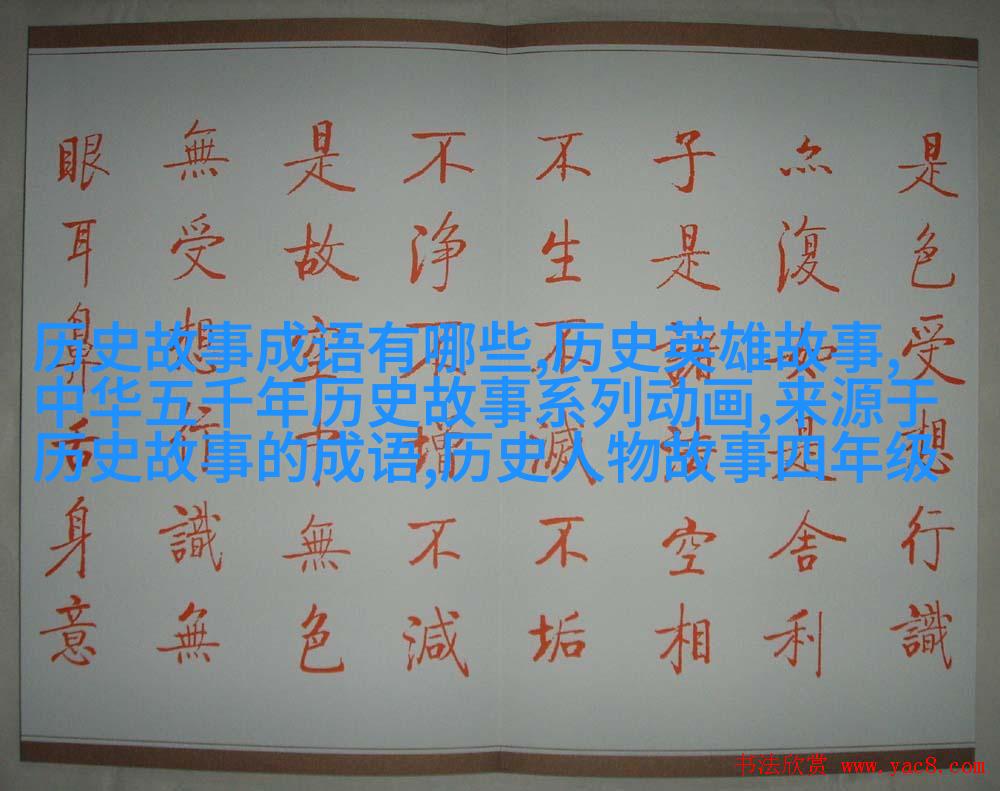 是色受想行識
亦復如是舍利
子是諸法空相
不生不滅不垢
不浄不增不減
是故空中無色
無受想行識無
眼耳鼻舌身意
历史故事成语有哪些,历史英雄故事,
中华五千年历史故事系列动画,来源于
历史故事的成语,历史人物故事四年级
书法欣赏 www.yac8.com